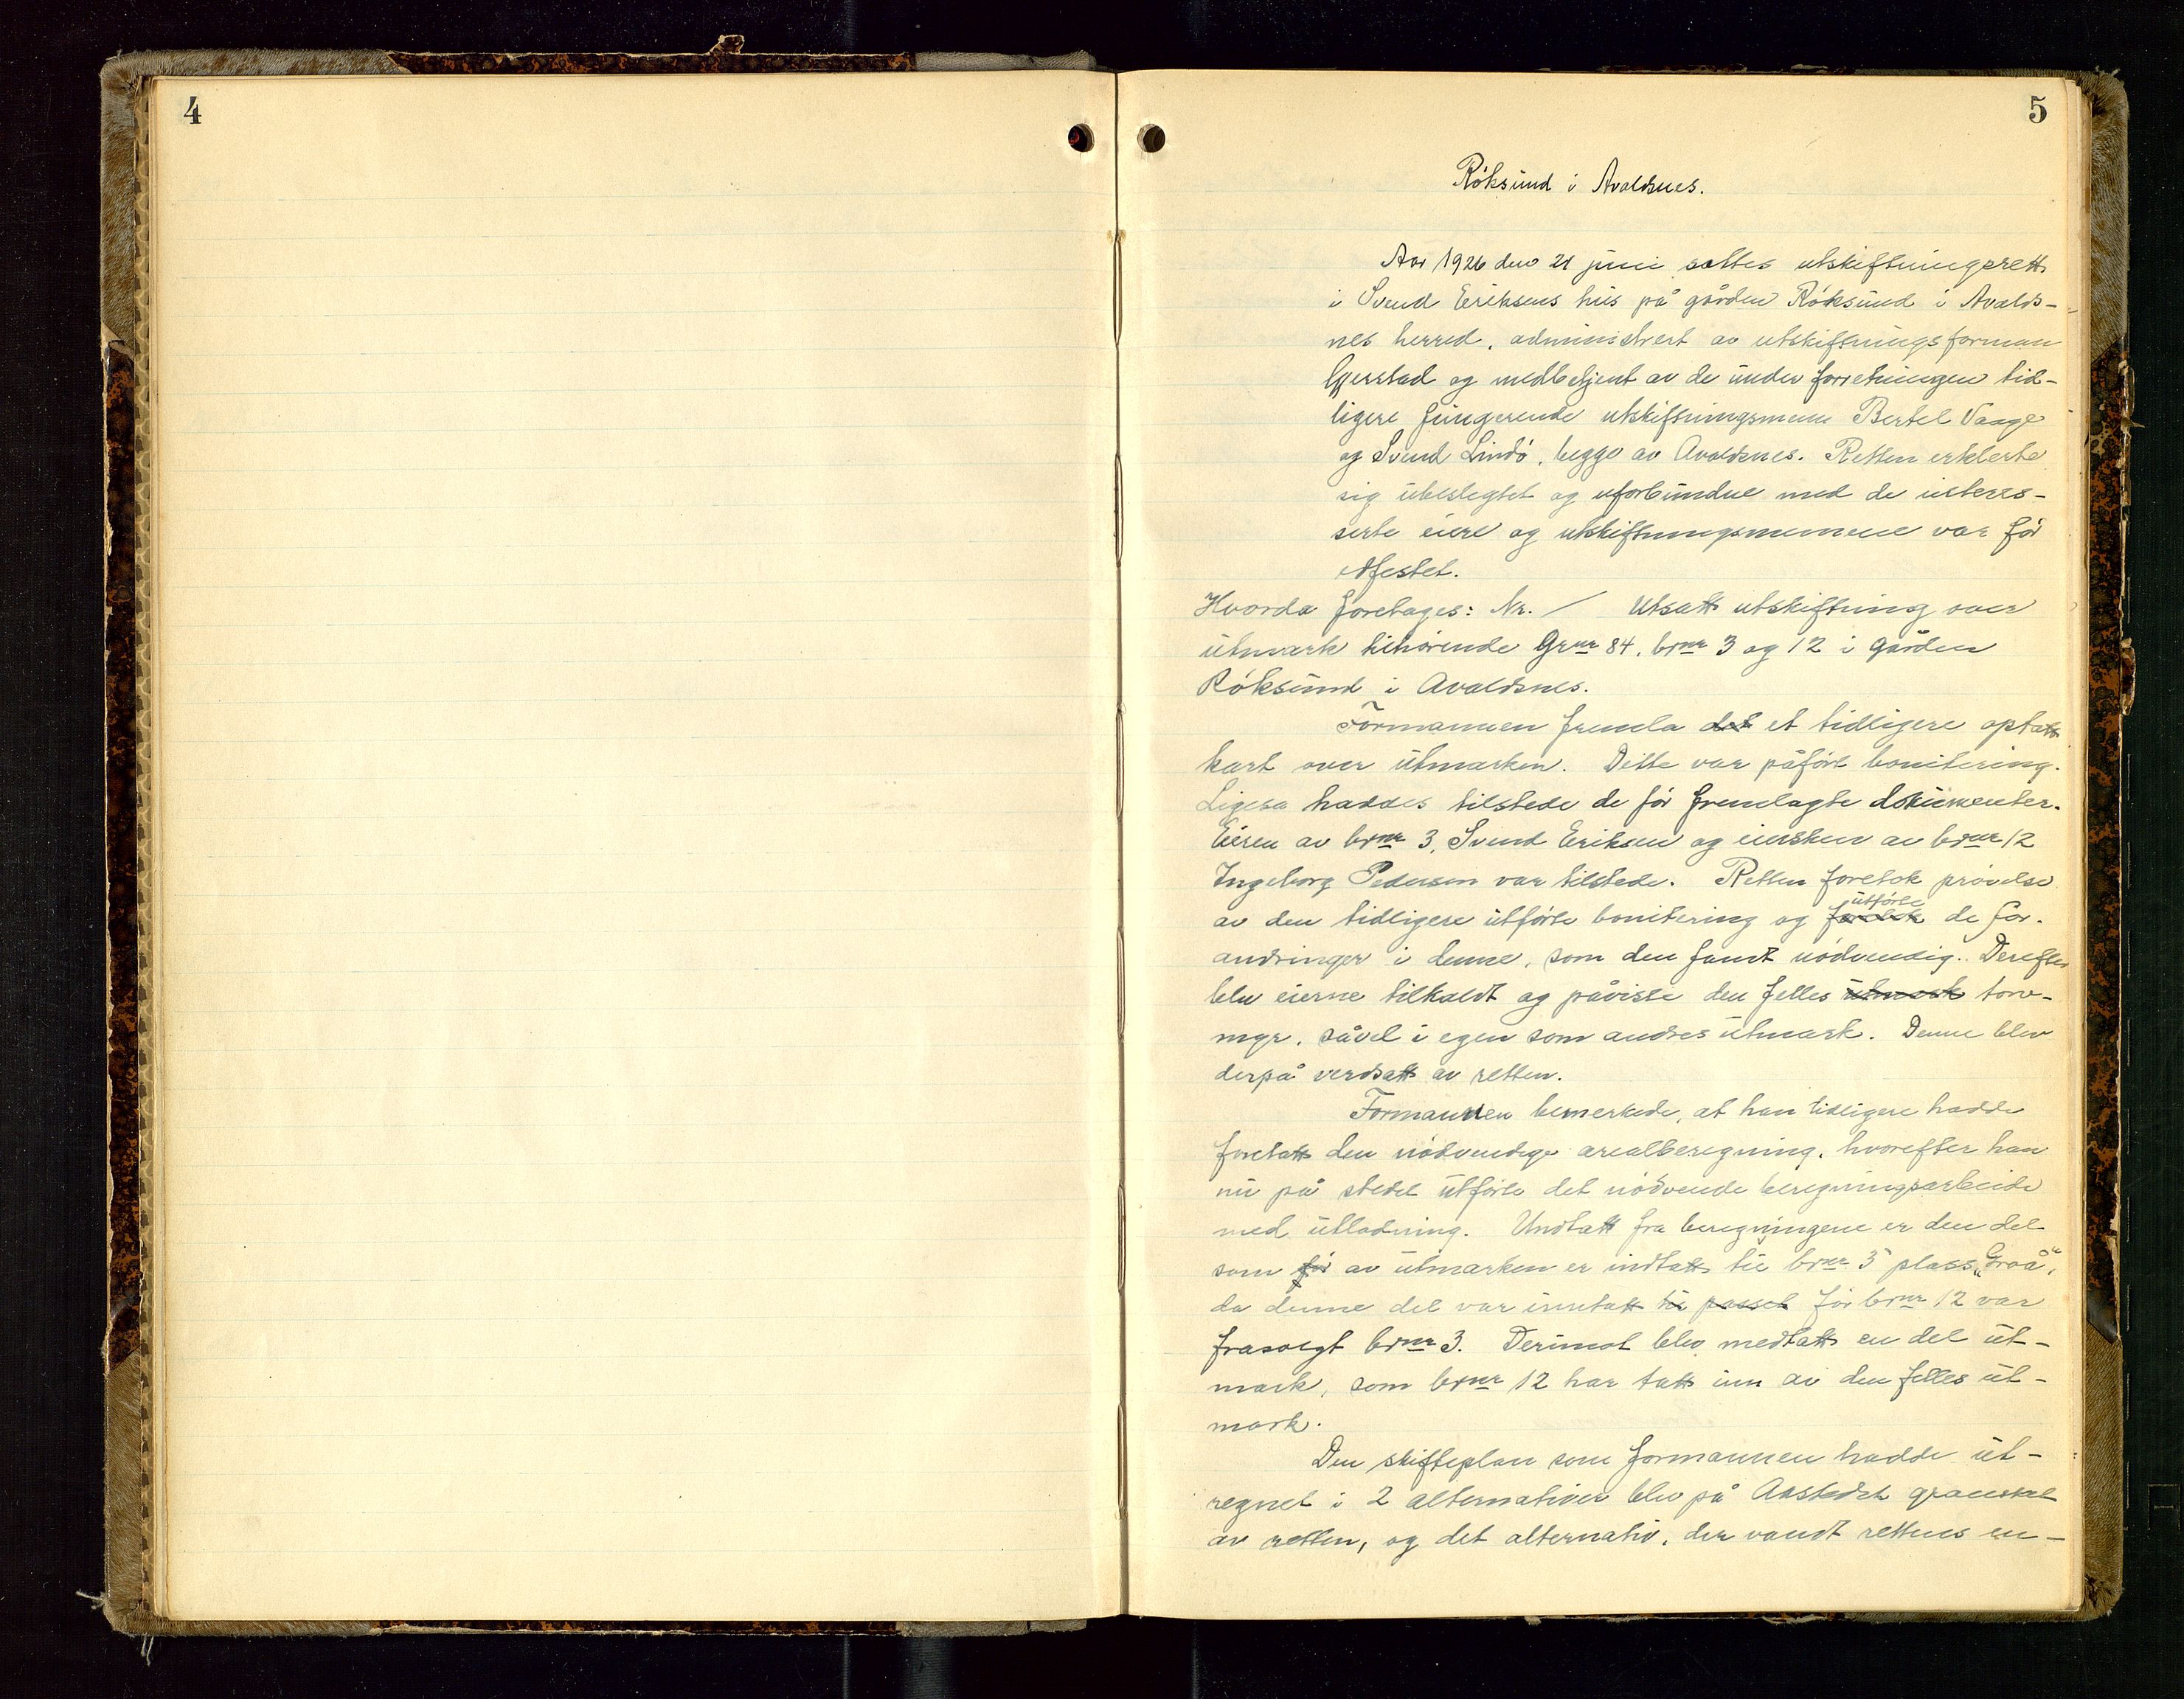 4
5
Röksund i Avaldsnes.
Aar 1926 den 21 juni sattes utskiftningsrett
i Svend Eriksens hus på gården Röksund i Avalds-
nes herred, administrert av utskiftningsforman
Gjerstad og medbetjent av de under forretningen tid-
ligere fungerende utskiftningsmenn Bertel Vaage
og Svend Lindö, begge av Avaldsnes. Retten erklerte
sig ubeslegtet og uforbundne med de interes-
serte eiere og utskiftningsmennene var för
edfestet.
Hvorda foretages: Nr. / Utsatt utskiftning over
utmark tilhörende Grnr 84, brnr 3 og 12 i gården
Röksund i Avaldsnes.
Formannen fremla det et tidligere optatt
kart over utmarken. Dette var påfört bonitering.
Ligesa haddes tilstede de för fremlagte dokumenter.
Eieren av brnr 3, Svend Eriksen og eiersken av brnr 12
Ingeborg Pedersen var tilstede. Retten foretok prövelse
av den tidligere utförte bonitering og foretok utförte de for-
andringer i denne, som den fandt nödvendig. Derefter
blev eierne tilkaldt og påviste den felles utmark torv-
myr, såvel i egen som andres utmark. Denne blev
derpå verdsatt av retten.
Formannen bemerkede, at han tidligere hadde
foretatt den nödvendige arealberegning, hvorefter han
nu på stedet utförte det nödvende beregningsarbeide
med utlodning. Undtatt fra beregningene er den del
som för av utmarken er indtatt til brnr 3 plass „Groå“,
da denne del var inntatt til passet för brnr 12 var
frasolgt brnr 3. Derimot blev medtatt en del ut-
mark, som brnr 12 har tatt inn av den felles ut-
mark.
Den skifteplan som formannen hadde ut-
regnet i 2 alternativer blev på Aastedet gransket
av retten, og det alternativ, der vandt rettens en-